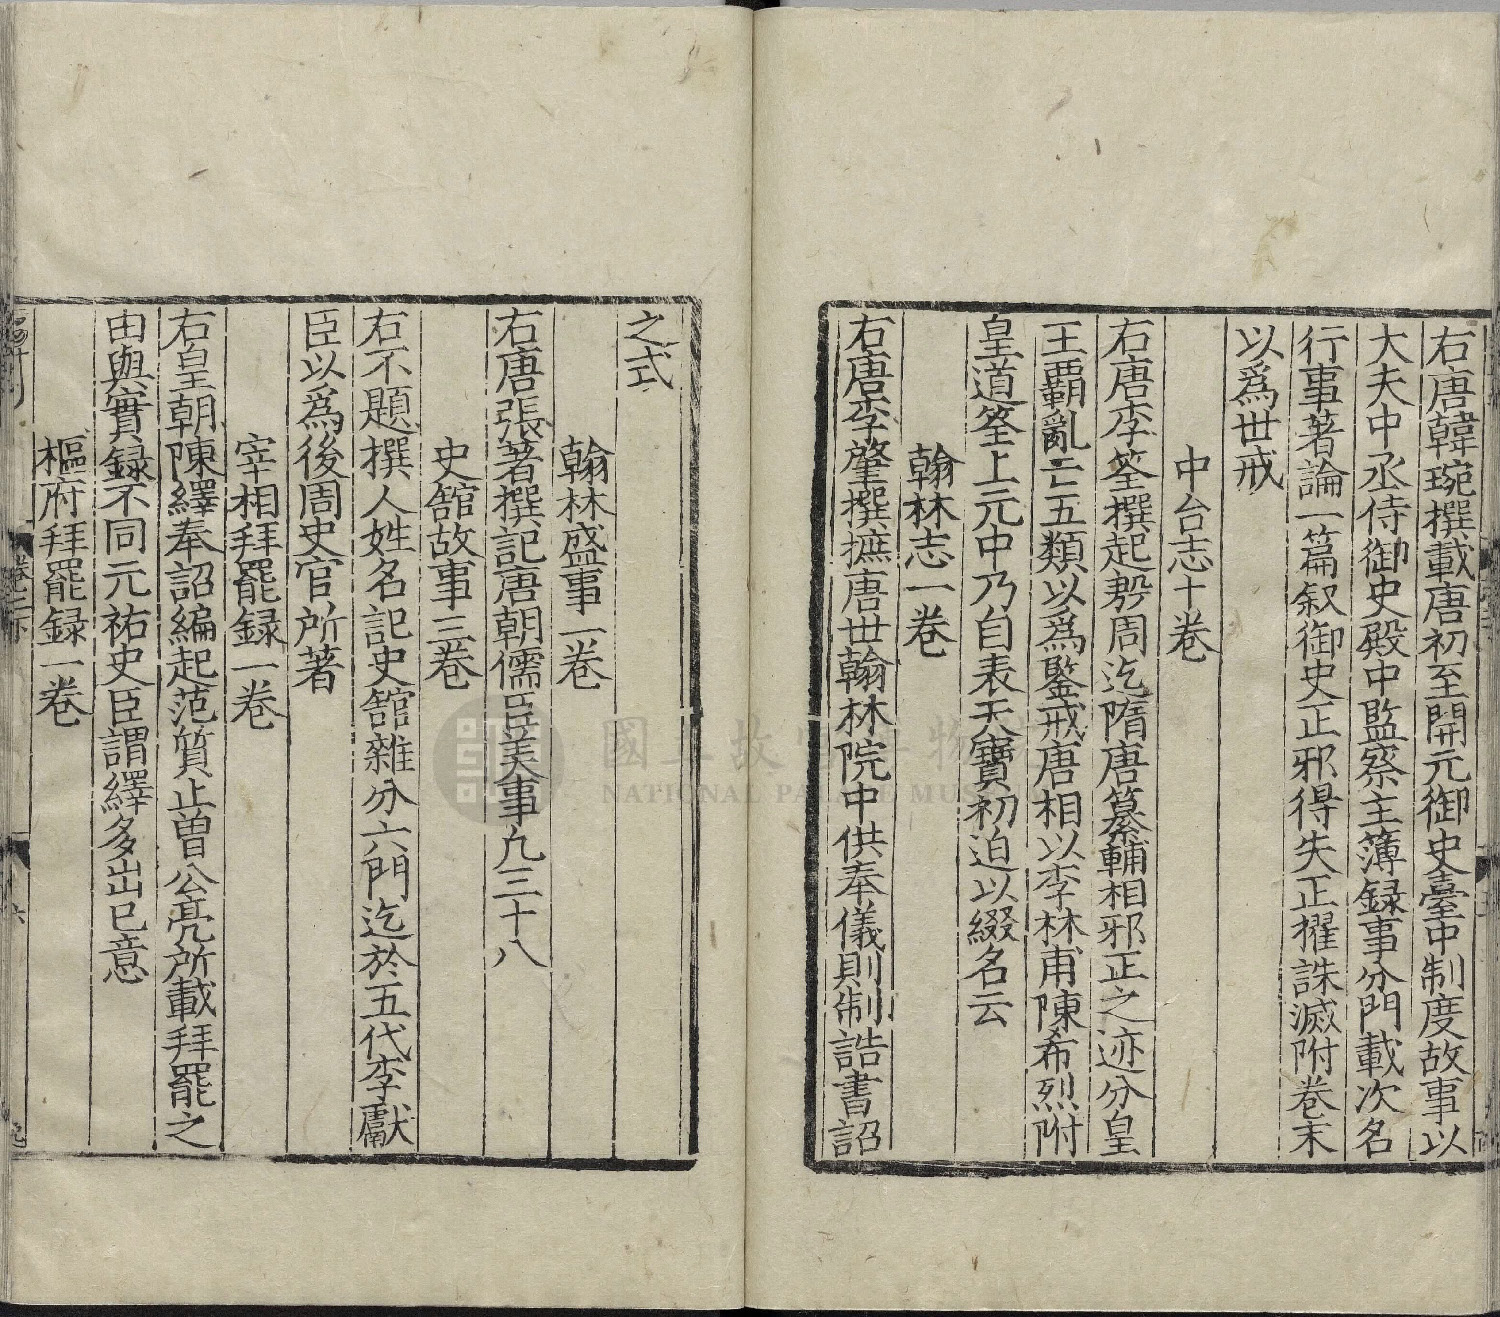 右唐韓琬撰載唐初至開元御史臺中制度故事以
大夫中丞侍御史殿中監察主簿録事分門載次名
行事著論一篇叙御史正邪得失正擢誅滅附卷末
以爲世戒
中台志十卷
右唐李筌撰起殷周迄隋唐纂輔相邪正之迹分皇
王覇亂亡五類以爲鑒戒唐相以李林甫陳希烈附
皇道筌上元中乃自表天寶初迫以綴名云
翰林志一卷
右唐李肇撰摭唐世翰林院中供奉儀則制誥書詔
之式
翰林盛事一卷
右唐張著撰記唐朝儒臣美事凡三十八
史舘故事三卷
右不題撰人姓名記史舘雜分六門迄於五代李獻
臣以爲後周史官所著
宰相拜罷録一卷
右皇朝陳繹奉詔編起范質止曾公亮所載拜罷之
由與實録不同元祐史臣謂繹多出已意
樞府拜罷録一卷
卷二下
六
國立故宮博物院
NATIONAL PALACE MUSEUM